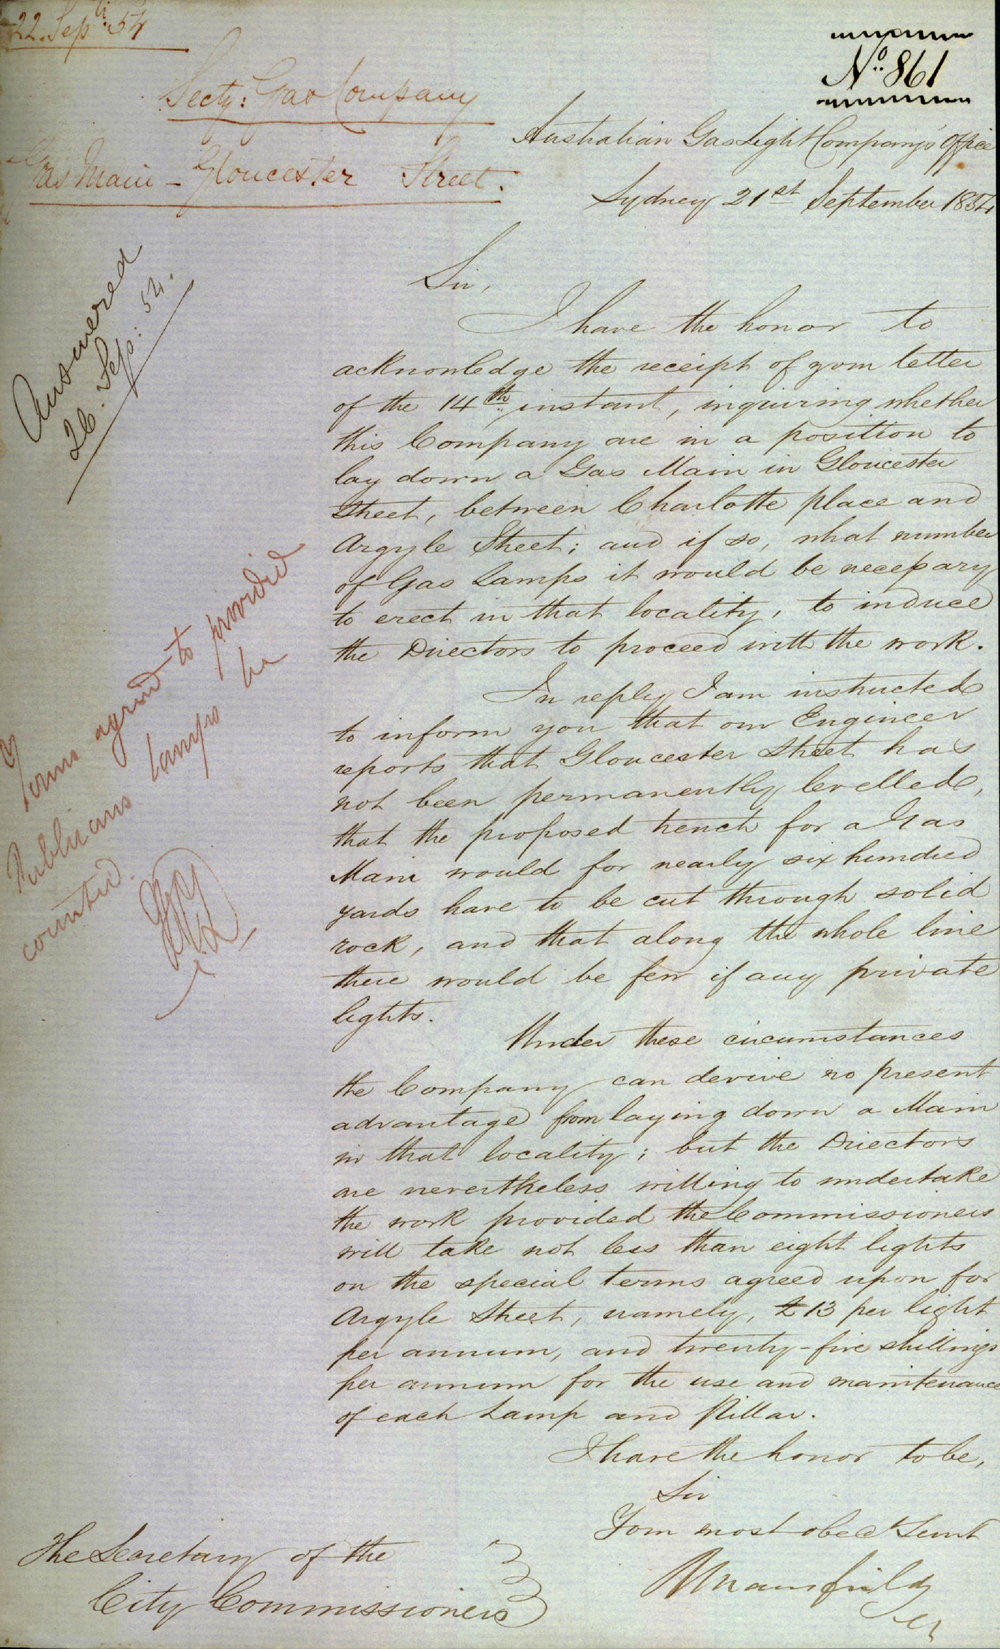 22. Septr. 54
No. 861
Secty: Gas Company
Gas Main - Gloucester Street.
Australian Gas Light Company's Office
Sydney 21st September 1854
Answered
26. Sep: 54.
Sir,
I have the honor to
acknowledge the receipt of your letter
of the 14th instant, inquiring whether
this Company are in a position to
lay down a Gas Main in Gloucester
Street, between Charlotte place and
Argyle Street; and if so, what number
of Gas Lamps it would be necessary
to erect in that locality, to induce
the Directors to proceed with the work.
In reply I am instructed
to inform you that our Engineer
reports that Gloucester Street has
not been permanently levelled,
that the proposed trench for a Gas
Main would for nearly six hundred
yards have to be cut through solid
rock, and that along the whole line
there would be few if any private
lights.
Under these circumstances
the Company can derive no present
advantage from laying down a Main
in that locality; but the Directors
are nevertheless willing to undertake
the work provided the Commissioners
will take not less than eight lights
on the special terms agreed upon for
Argyle Street, namely, £13 per light
per annum, and twenty-five shillings
per annum for the use and maintenance
of each Lamp and Pillar.
I have the honor to be,
Sir
Your most obedt Servt
Mansfield
The Secretary of the
City Commissioners
Terms agreed to provided
Publicans lamps be
counted.